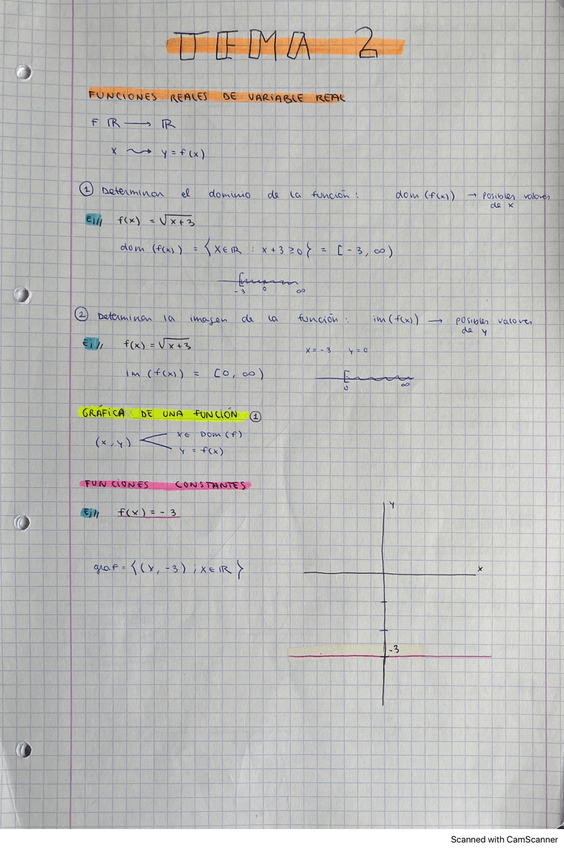 TEMA 2
FUNCIONES REALES DE VARIABLE REAL
F ℝ ⟶ ℝ
x ⇝ y = f(x)
① Determinar el dominio de la función: dom (f(x)) → posibles valores
de x
Ej// f(x) = √x+3
dom (f(x)) = {x∈ℝ : x+3 ≥0} = [-3, ∞)
-3 0 ∞
② Determinar la imagen de la función: im(f(x)) → posibles valores
de y
Ej// f(x) = √x+3 x=-3 y=0
Im (f(x)) = [0, ∞)
0 ∞
GRÁFICA DE UNA FUNCIÓN ①
(x, y) x∈ Dom (f)
y = f(x)
FUNCIONES CONSTANTES
Ej// f(x) = -3
y
graf = {(x, -3), x∈ℝ}
x
-3
Scanned with CamScanner